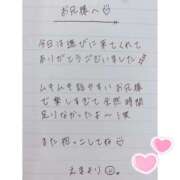 お兄様へ
今日は遊びに来てくれて
ありがとうございました
ムキムキで話やすいお兄様
で楽しすぎて全然時間
足りなかったよ〜!笑
また抱っこしてね
えまより